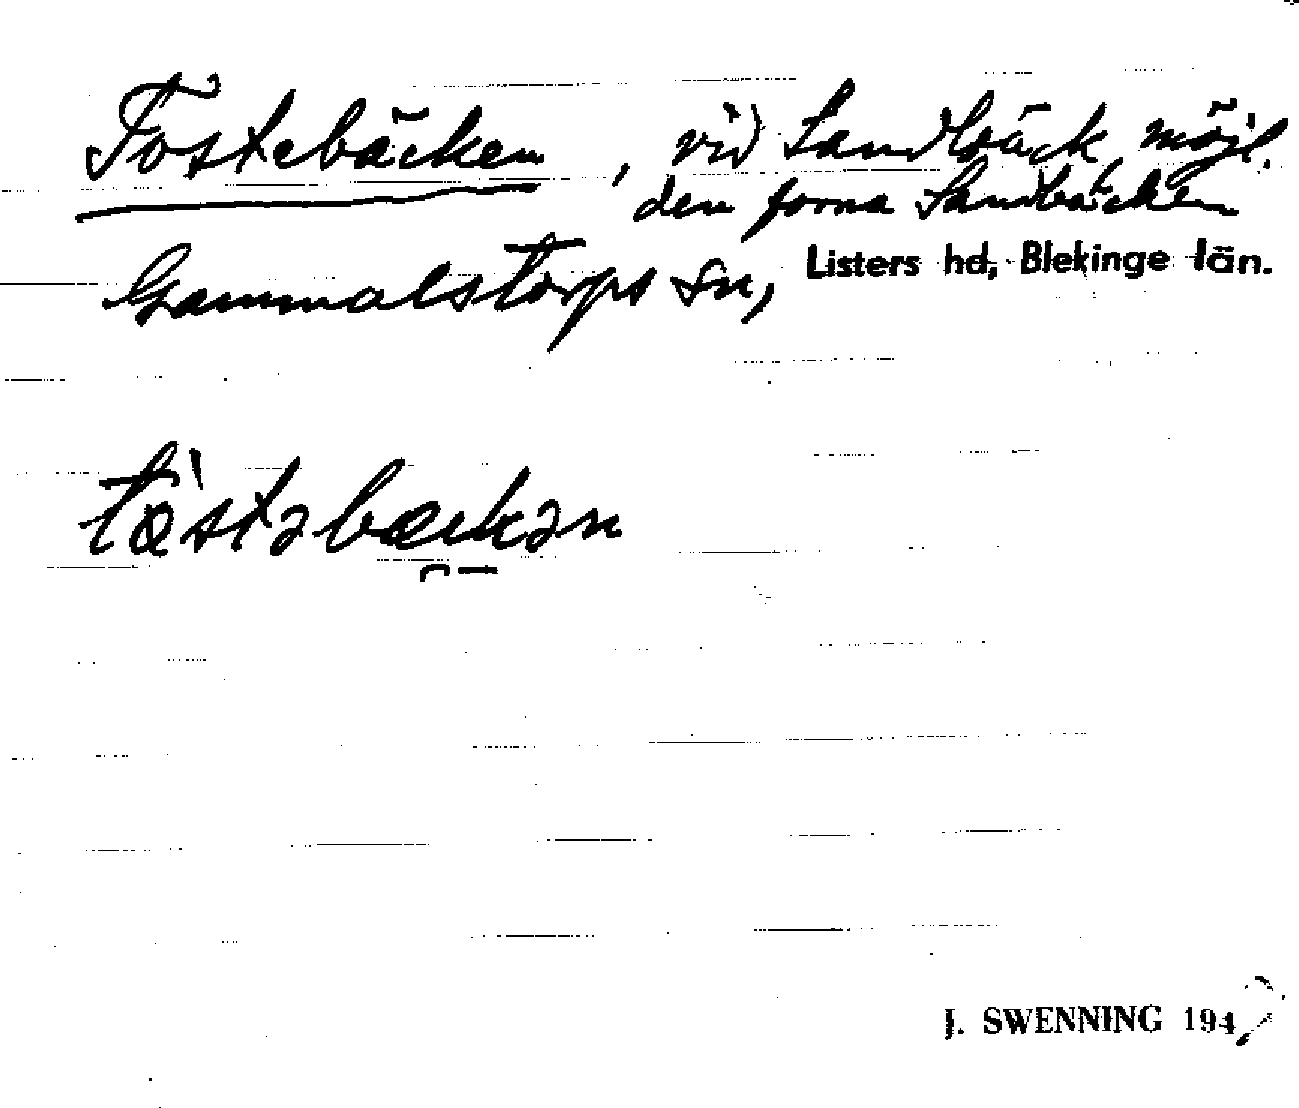 Tostebäcken, vid Sandbäck, möjl.
den forna Sandbäcken
Gammalstorps sn, Listers hd, Blekinge län.
tò̀stəbækən
J. SWENNING 194